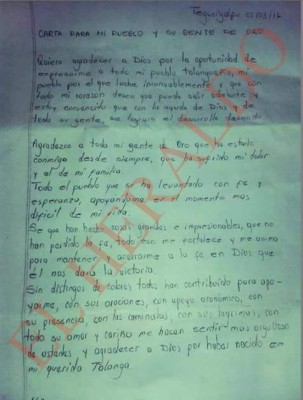 Tegucigalpa
CARTA PARA MI PUEBLO Y SU GENTE DE ORO
Quiero agradecer a Dios por la oportunidad de
expresarme a todo mi pueblo talangueño, mi
pueblo por el que luche incansablemente y que con
todo mi corazon deseo que pueda salir adelante y
estoy convencido que con la ayuda de Dios y de
toda su gente, se lograra el desarrollo deseado
Agradezco a toda mi gente de Oro que ha estado
conmigo desde siempre, que ha sufrido mi dolor
y el de mi familia.
Todo el pueblo que se ha levantado con fe y
esperanza, apoyandome en el momento mas
dificil de mi vida.
Se que han hecho cosas grandes e impresionables, que no
han perdido la fe, todo eso me fortalece y me anima
para mantener y acercarme a la fe en Dios que
el nos dara la victoria.
Sin distingos de colores todos han contribuido para apo-
yarme, con sus oraciones, con apoyo economico, con
su presencia, con las caminatas, con sus lagrimas, con
todo su amor y cariño me hacen sentir mas orgulloso
de ustedes y agradecer a Dios por haber nacido en
mi querida Talanga.
EL HERALDO